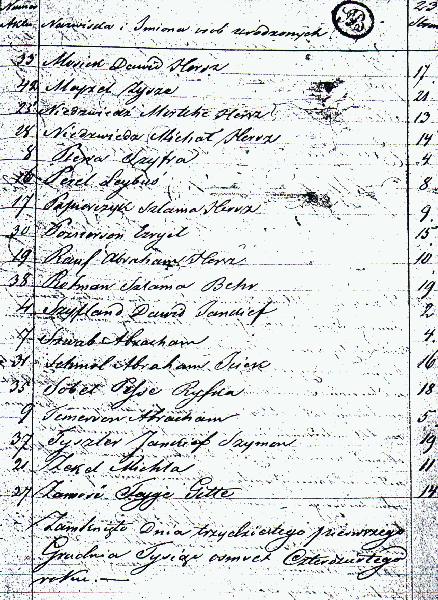 Numer 23
Aktu Nazwiska i Imiona osob urodzonych Strona
35 Mosiek Dawid Hersz 17
42 Majzel Ryvza 21
23 Niedzwiedz Mortche Hersz 13
28 Niedzwiedz Michał Hersz 14
8 Szyfra 4
16 Perel Leybus 8
17 Papierczyk Szlama Hersz 9
30 Poznerson Ezryel 15
19 Rauf Abraham Hersz 10
38 Rotman Szlama Behr 19
4 Szyfland Dawid Jankief 2
7 Szwab Abraham 4
31 Schmol Abraham Icick 16
35 Sobel Pesse Ryfka 18
9 Temerson Abraham 5
37 Tyszler Jankief Szymon 19
21 Michla 11
27 Zamość Fayge Gitte 14
Zamknięto Dnia trzydziestego pierwszego
Grudnia Tysiąc osmset Czterdziestego
roku. —